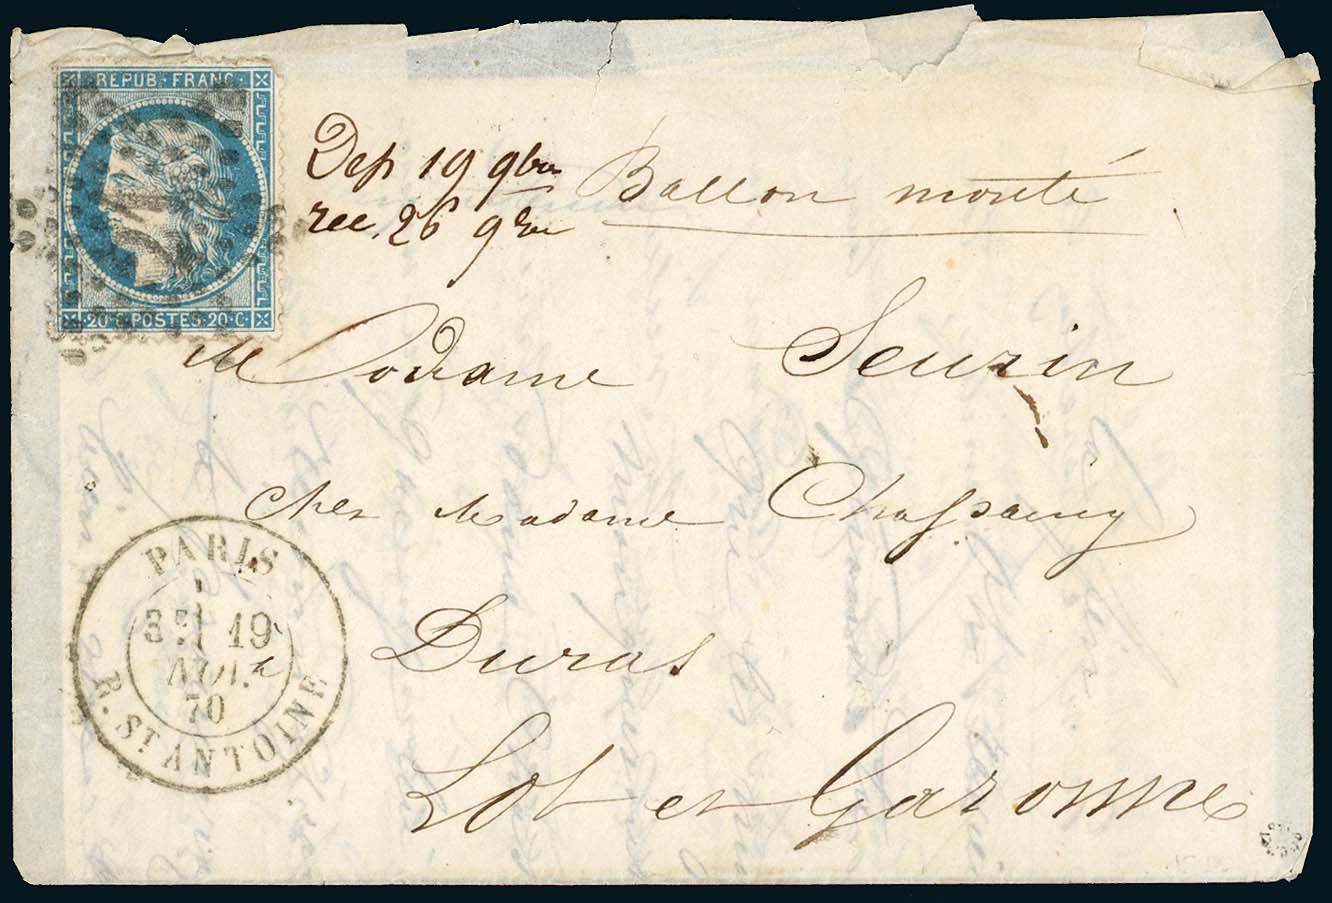 REPUB · FRANC ·
20 · C · POSTES · 20 · C ·
Dep 19 9bre
rec. 26 9bre
Ballon monté
Madame Seuzin
chez Madame Chassaing
Duras
Lot et Garonne
PARIS
19
NOV.
70
R. ST ANTOINE